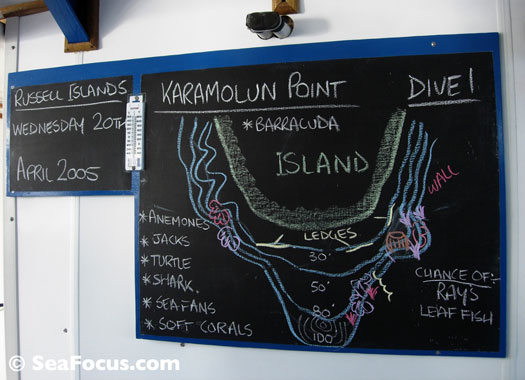 RUSSELL ISLANDS
WEDNESDAY 20TH
APRIL 2005
KARAMOLUN POINT
DIVE 1
* BARRACUDA
ISLAND
WALL
* ANEMONES
* JACKS
* TURTLE
* SHARK.
* SEAFANS
* SOFT CORALS
LEDGES
30'
50'
80'
100'
CHANCE OF:-
RAY'S
LEAF FISH
© SeaFocus.com